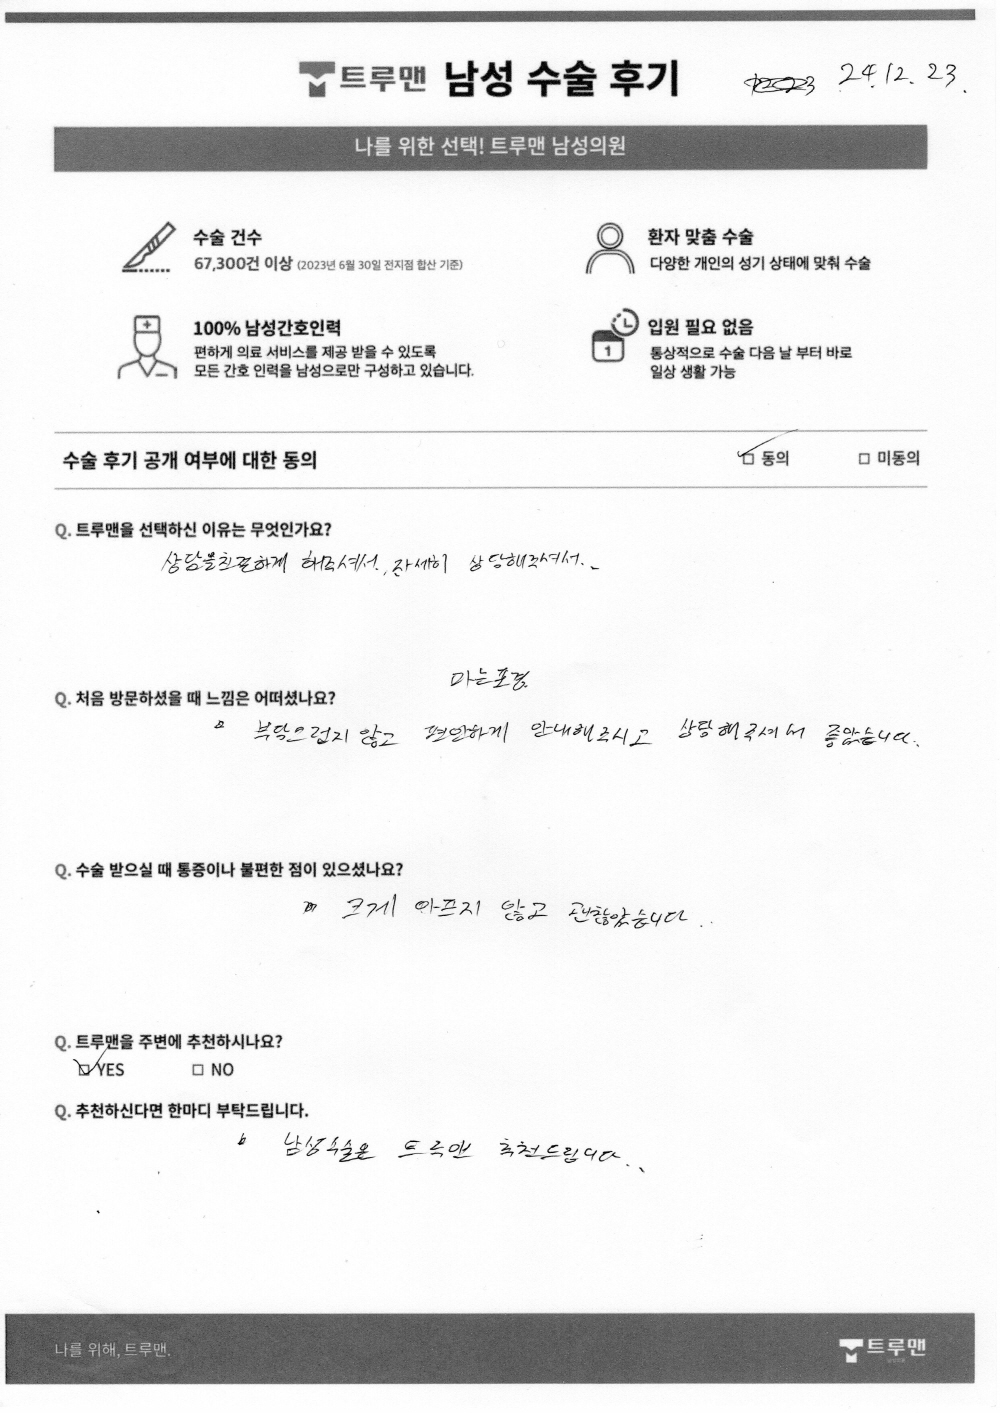 트루맨 남성 수술 후기
24.12.23.
나를 위한 선택! 트루맨 남성의원
수술 건수
67,300건 이상 (2023년 6월 30일 전지점 합산 기준)
환자 맞춤 수술
다양한 개인의 성기 상태에 맞춰 수술
100% 남성간호인력
편하게 의료 서비스를 제공 받을 수 있도록
모든 간호 인력을 남성으로만 구성하고 있습니다.
입원 필요 없음
1
통상적으로 수술 다음 날 부터 바로
일상 생활 가능
수술 후기 공개 여부에 대한 동의
동의
미동의
Q. 트루맨을 선택하신 이유는 무엇인가요?
상담을 해주셔서. 자세히 상담해주셔서..
Q. 처음 방문하셨을 때 느낌은 어떠셨나요?
부담스럽지 않고 편안하게 안내해주시고 상담해주셔서 좋았습니다.
Q. 수술 받으실 때 통증이나 불편한 점이 있으셨나요?
크게 아프지 않고 괜찮았습니다..
Q. 트루맨을 주변에 추천하시나요?
YES
NO
Q. 추천하신다면 한마디 부탁드립니다.
남성수술은 트루맨 추천드립니다..
나를 위해, 트루맨.
트루맨